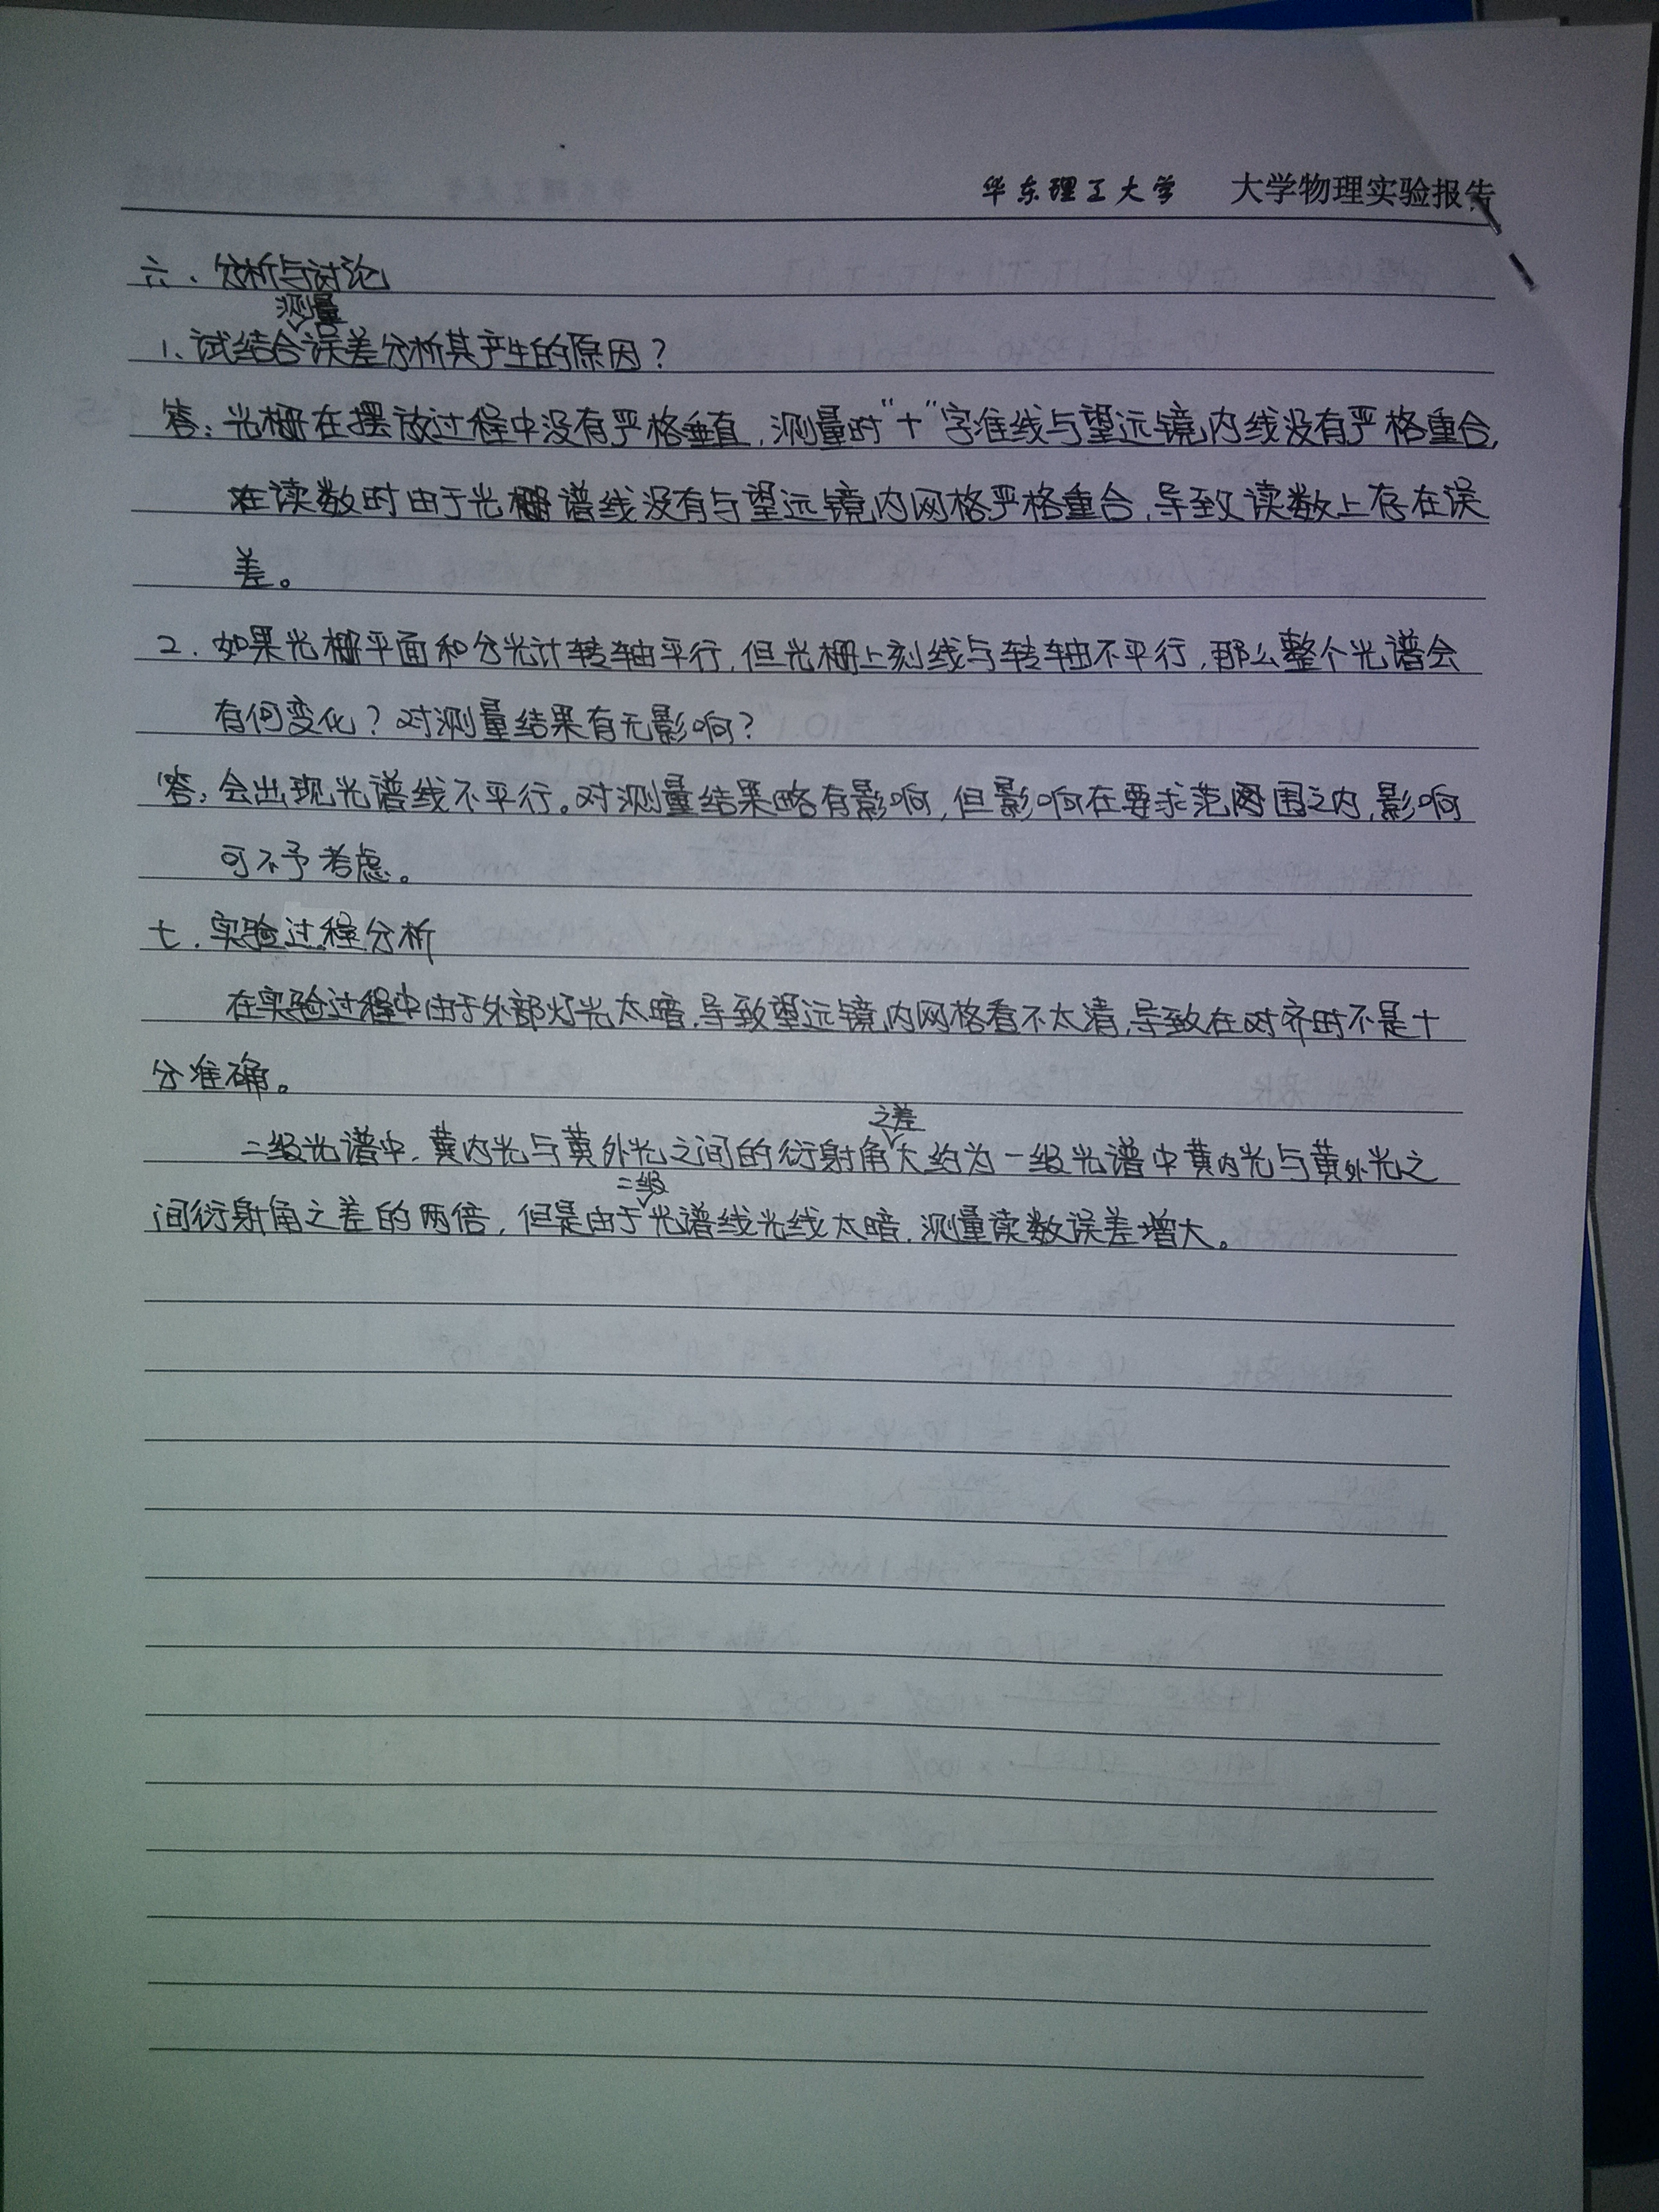 华东理工大学 大学物理实验报告
六、分析与讨论
测量
1、试结合误差分析其产生的原因？
答：光栅在摆放过程中没有严格垂直，测量时“十”字准线与望远镜内线没有严格重合，
在读数时由于光栅谱线没有与望远镜内网格严格重合，导致读数上存在误
差。
2．如果光栅平面和分光计转轴平行，但光栅上刻线与转轴不平行，那么整个光谱会
有何变化？对测量结果有无影响？
答：会出现光谱线不平行。对测量结果略有影响，但影响在要求范围之内，影响
可不予考虑。
七．实验过程分析
在实验过程中由于外部灯光太暗，导致望远镜内网格看不太清，导致在对齐时不是十
分准确。
之差
二级光谱中，黄内光与黄外光之间的衍射角大约为一级光谱中黄内光与黄外光之
二级
间衍射角之差的两倍，但是由于光谱线光线太暗，测量读数误差增大。